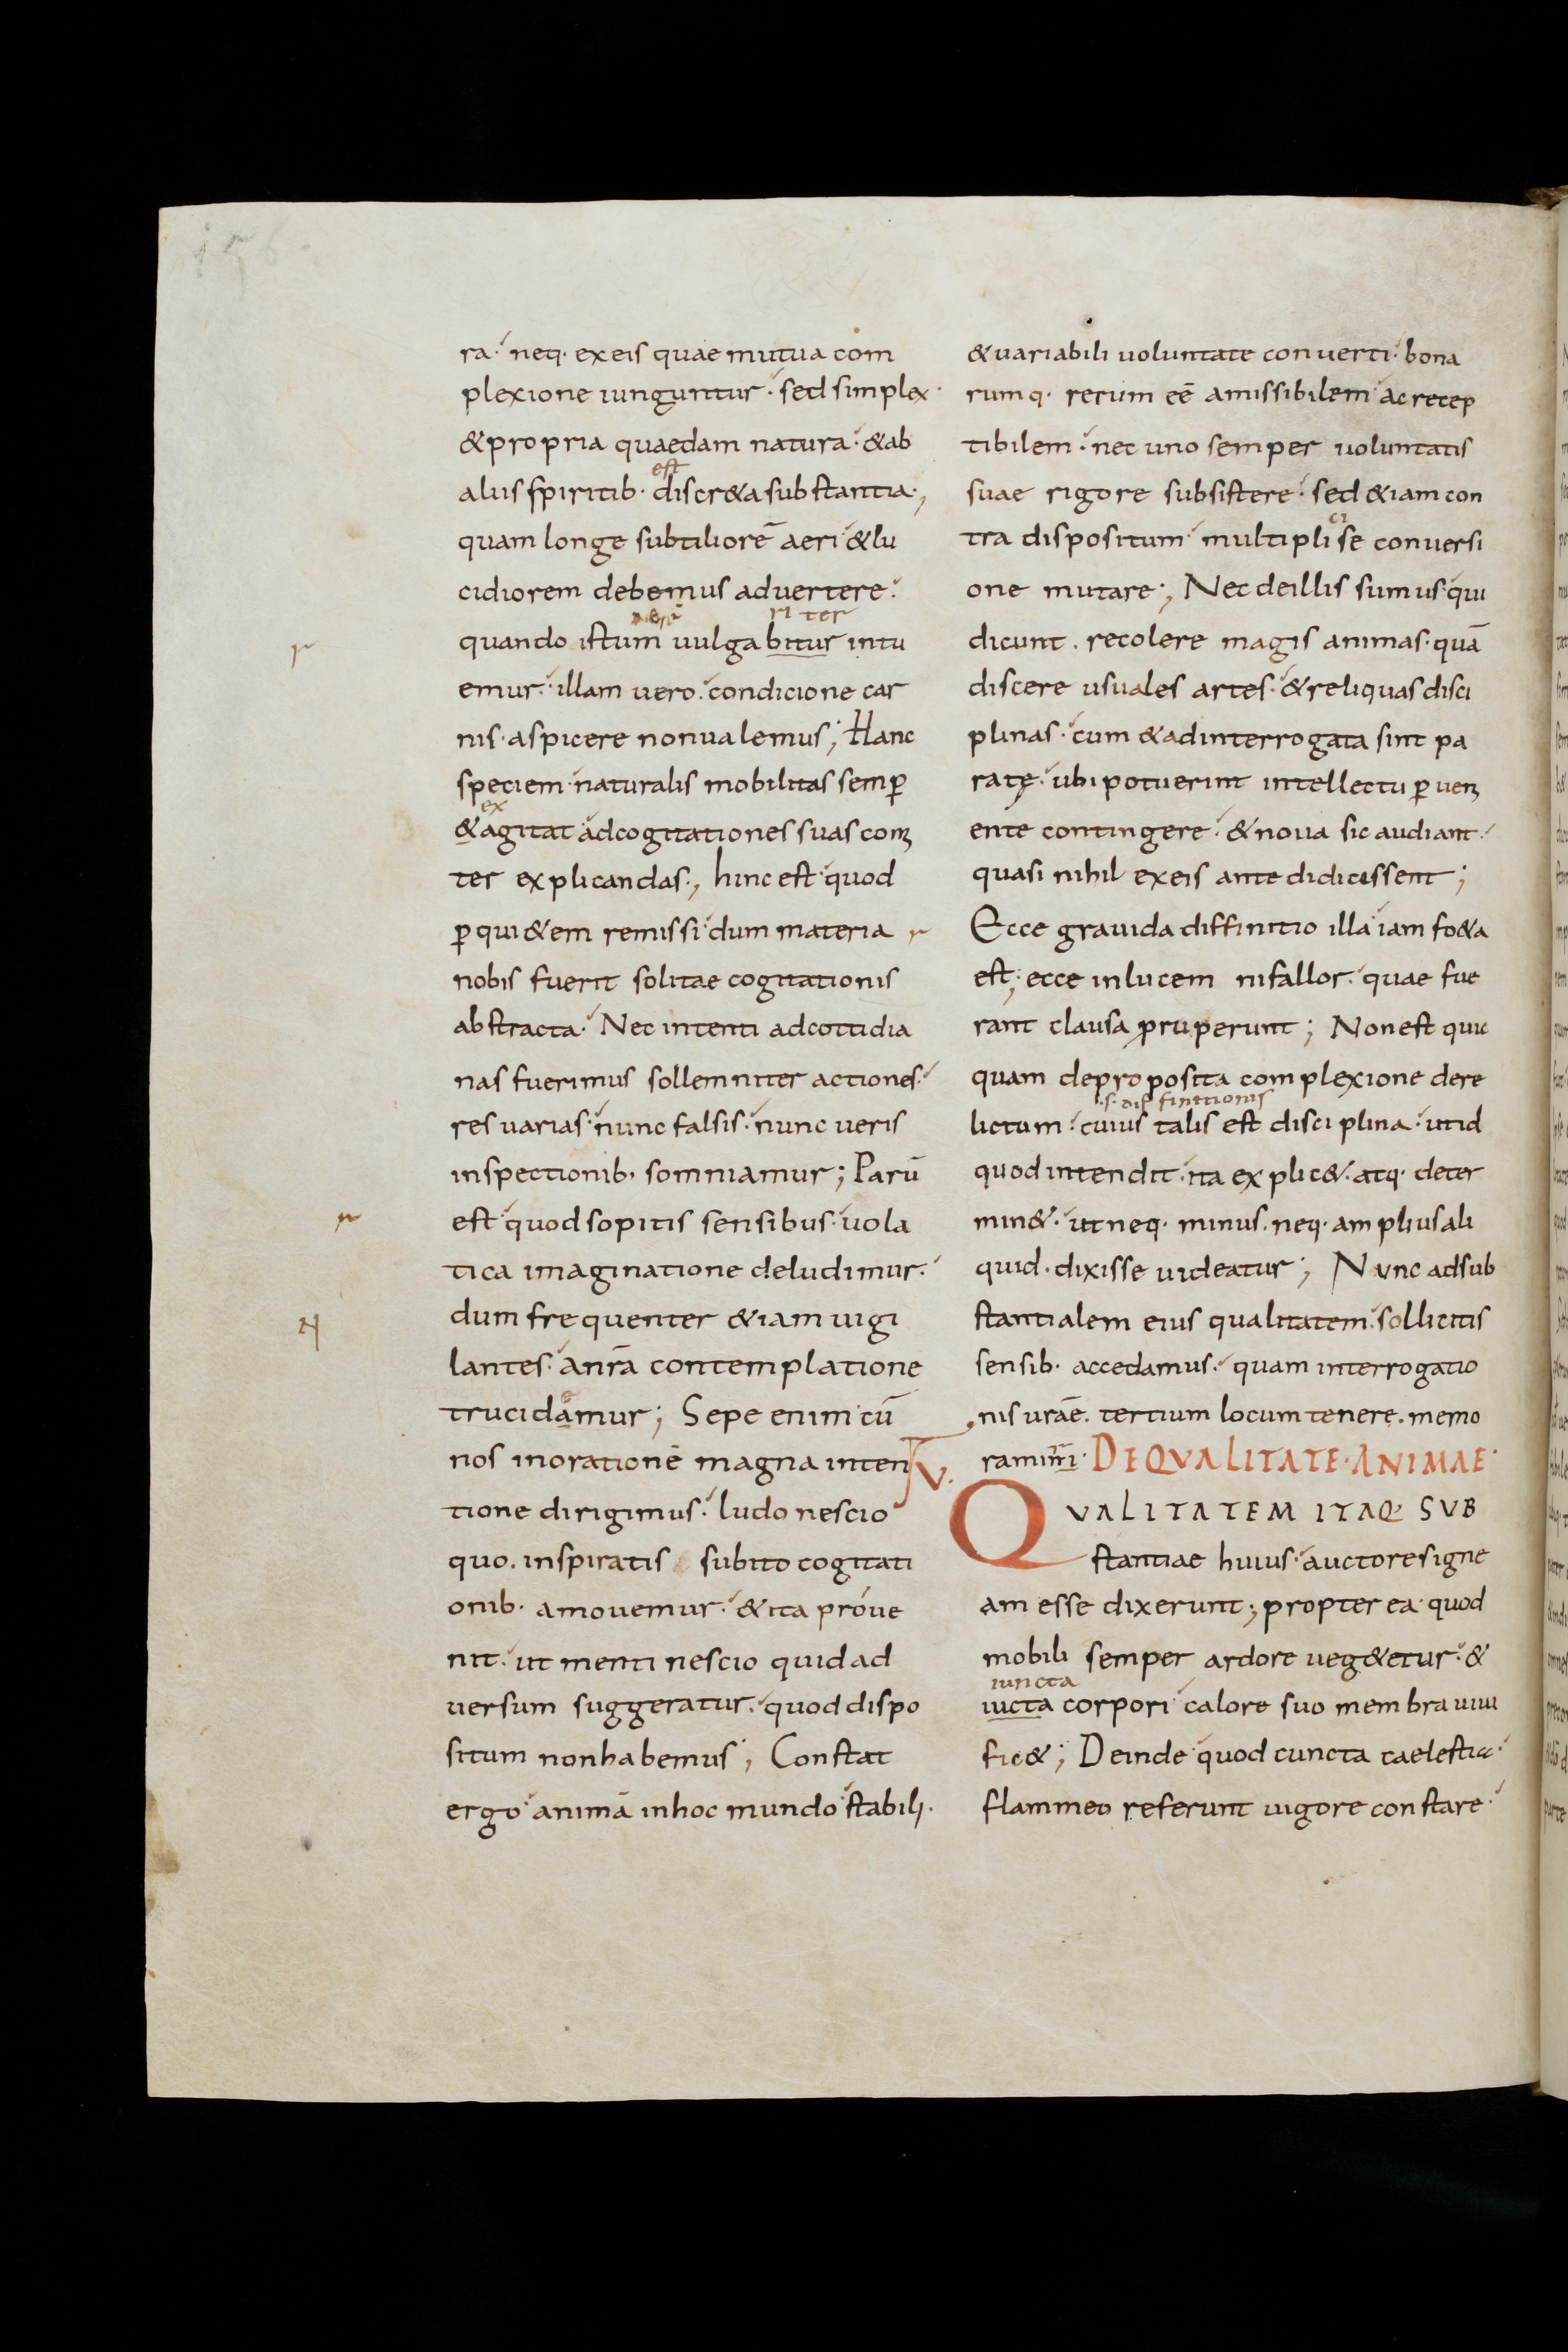 ra. neq. exeis quae mutua com
plexione iunguntur. sed simplex.
& propria quaedam natura. & ab
aliis spiritib. discr&a substantia;
est
quam longe subtiliorē aeri & lu
cidiorem debemus advertere.
quando istum uulgabitur intu
aerē ri ter
emur. illam uero. condicione car
nis. aspicere nonualemus; Hanc
speciem naturalis mobilitas semꝑ
& agitat adcogitationes suas com
ex
ter explicandas; hinc est quod
ꝑ qui&em remissi dum materia
nobis fuerit solitae cogitationis
abstracta. Nec intenti adcottidia
nas fuerimus sollemniter actiones.
res varias. nunc falsis. nunc veris
inspectionib. somniamur; Parū
est quod sopitis sensibus. uola
tica imaginatione deludimur.
dum frequenter &iam uigi
lantes. anr̄a contemplatione
trucidamur; Sepe enim cū
e
nos inoratione magna inten
tione dirigimus. ludo nescio
quo. inspiratis subito cogitati
onib. amouemur. & ita prove
nit. ut menti nescio quid ad
versum suggeratur. quod dispo
situm nonhabemus; Constat
ergo animā inhoc mundo stabili.
& uariabili uoluntate converti. bona
rumq. rerum eē amissibilem ac recep
tibilem. nec uno semper uoluntatis
suae rigore subsistere. sed &iam con
tra dispositum multiplise conversi
ci
one mutare; Nec deillis sumus qui
dicunt. recolere magis animas. quā
discere usuales artes. & reliquas disci
plinas. cum & adinterrogata sint pa
ratę. ubi potuerint intellectu ꝑueni
ente contingere. & noua sic audiant.
quasi nihil exeis ante didicissent;
Ecce gravida diffinitio illa iam fo&a
est; ecce inlucem nifallor. quae fue
rant clausa, pruperunt; Nonest quic
quam deproposita complexione dere
lictum. cuius talis est disciplina. ut id
.s. diffinitionis
quod intendit. ita explic&. atq. deter
min&. ut neq. minus. neq. amplius ali
quid. dixisse uideatur; Nunc adsub
stantialem eius qualitatem. sollicitis
sensib. accedamus. quam interrogatio
nis urāe. tertium locum tenere. memo
ramini. DE QVALITATE. ANIMAE.
IV.
QVALITATEM ITAQ. SVB
stantiae huius. auctores igne
am esse dixerunt; propter ea quod
mobili semper ardore ueg&etur. &
iucta corpori calore suo membra uiui
iuncta
fic&; Deinde quod cuncta caelestia
flammeo referunt uigore constare.